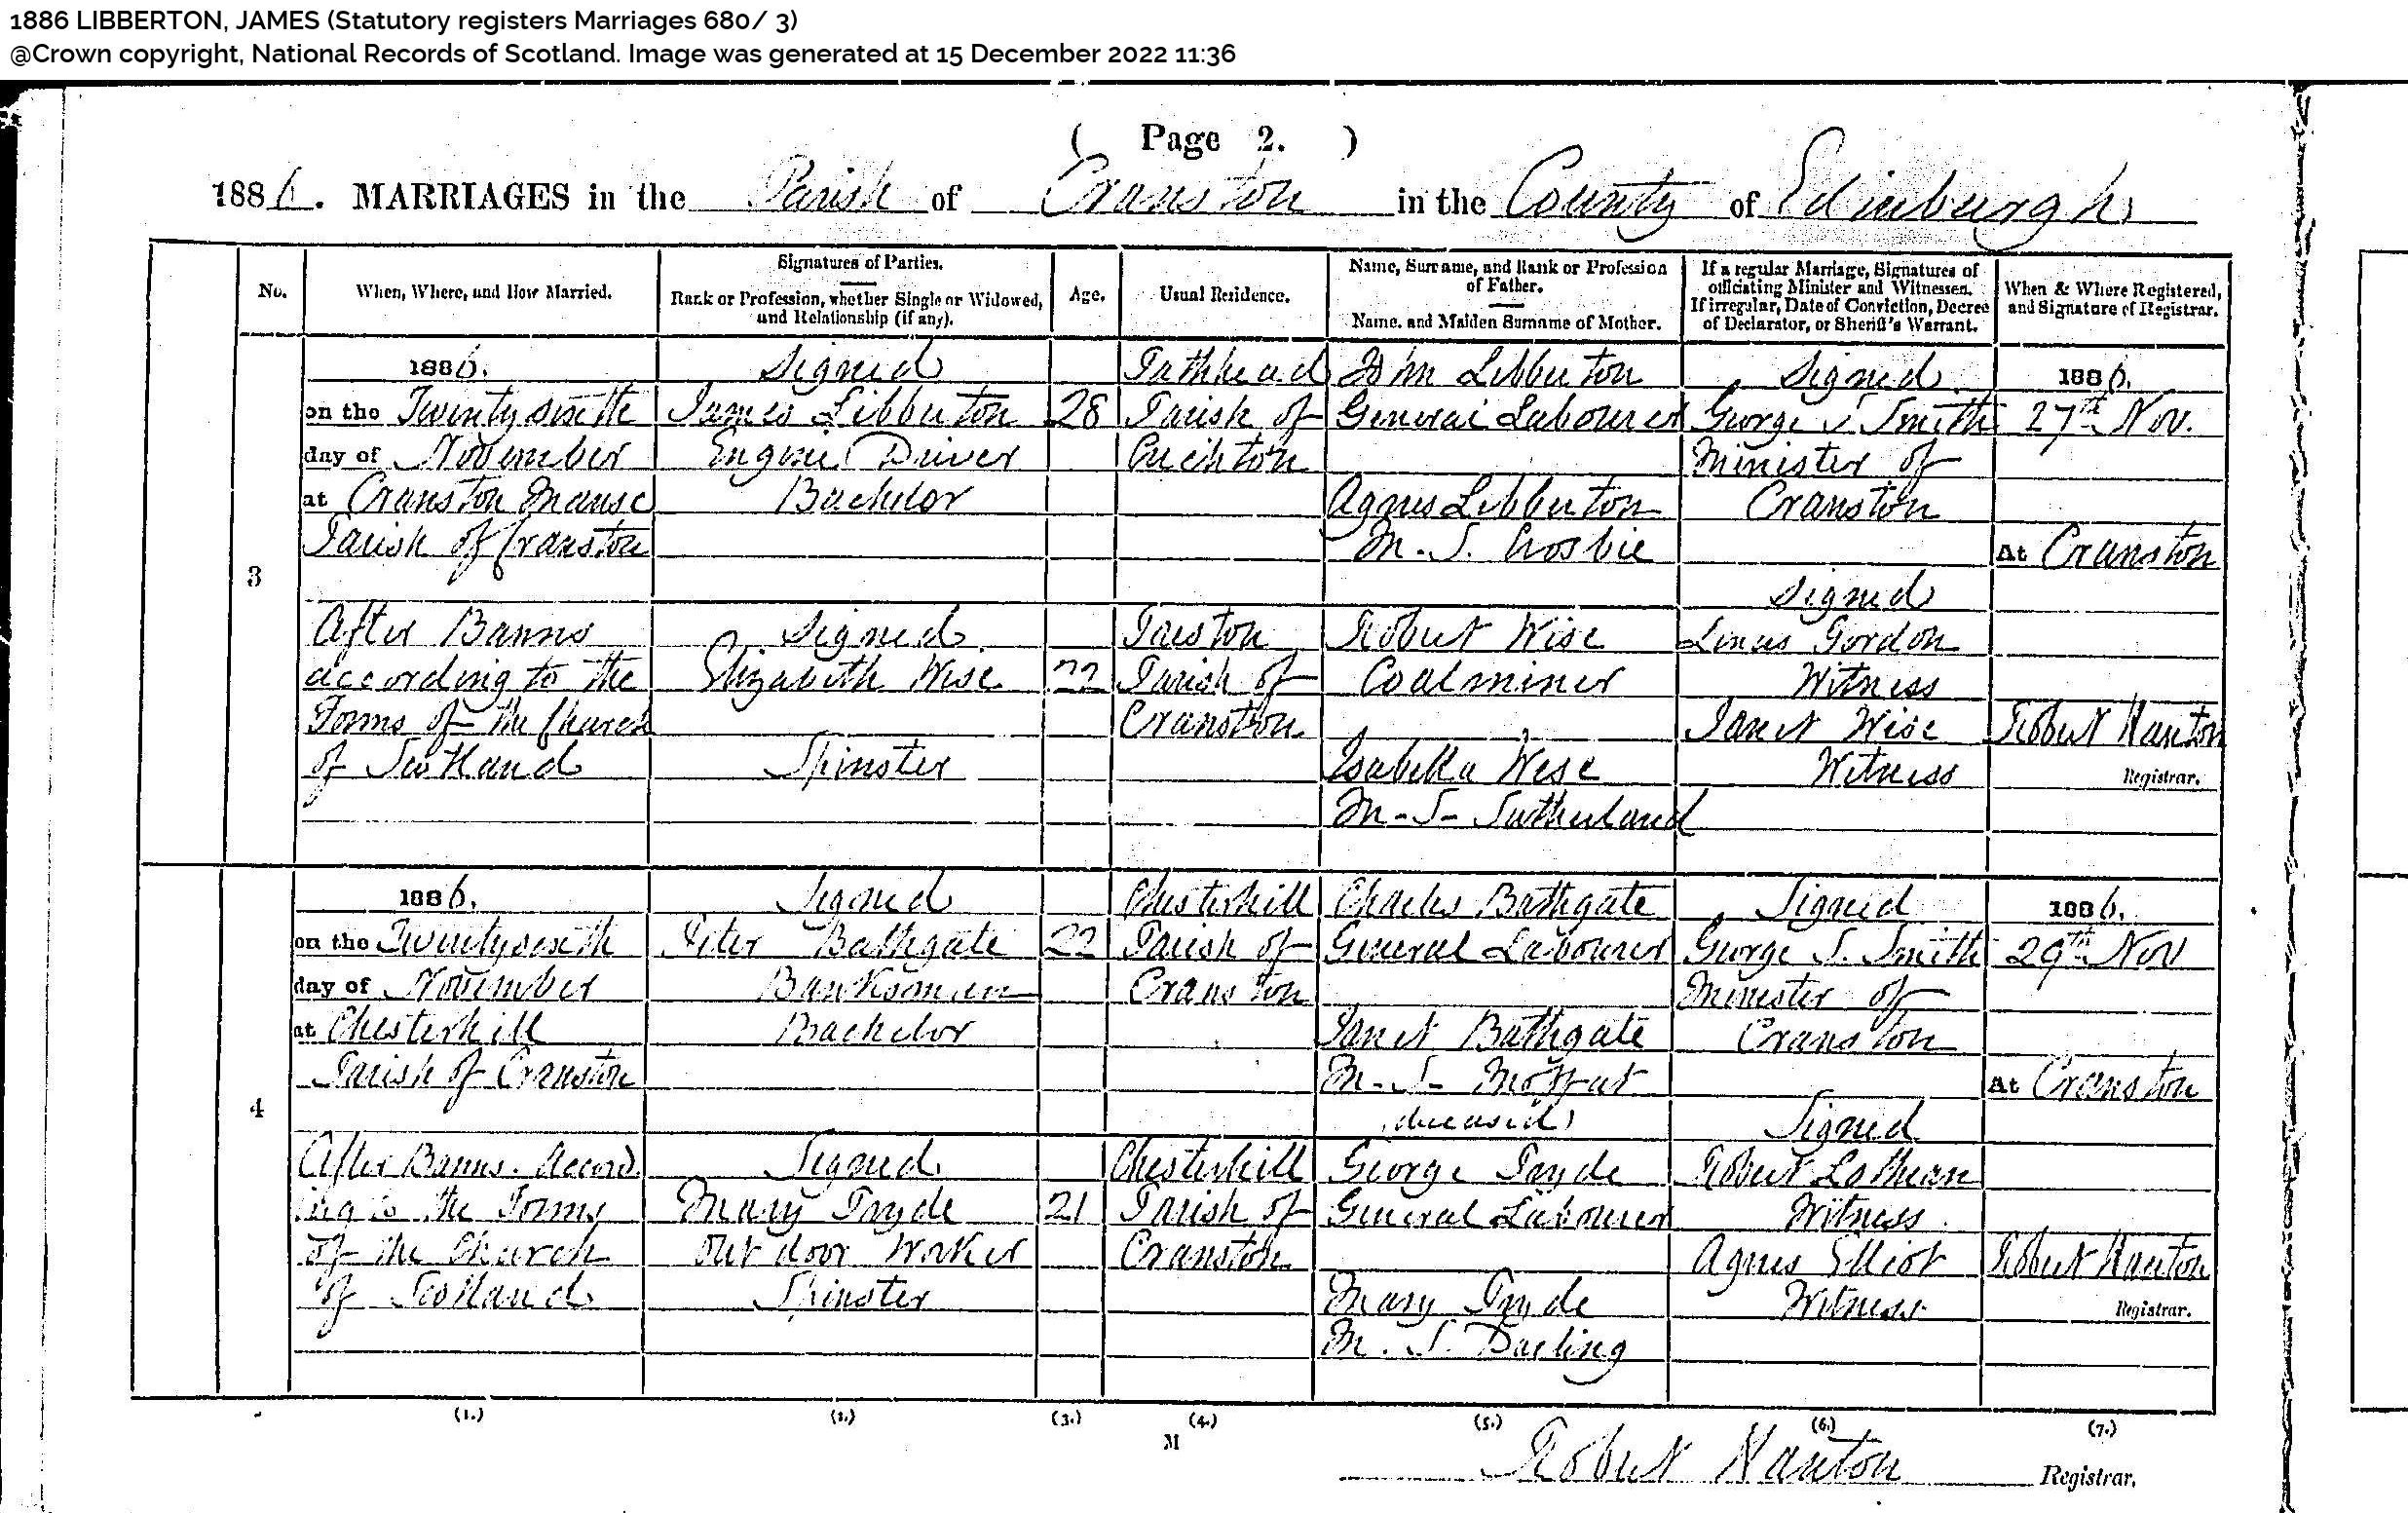 1886 LIBBERTON, JAMES (Statutory registers Marriages 680/ 3)
@Crown copyright, National Records of Scotland. Image was generated at 15 December 2022 11:36
( Page 2. )
1886. MARRIAGES in the Parish of Cranston in the County of Edinburgh
No.
When, Where, and How Married.
Signatures of Parties.
Rank or Profession, whether Single or Widowed,
and Relationship (if any).
Age.
Usual Residence.
Name, Surname, and Rank or Profession
of Father.
Name, and Maiden Surname of Mother.
If a regular Marriage, Signatures of
officiating Minister and Witnesses.
If irregular, Date of Conviction, Decree
of Declarator, or Sheriff's Warrant.
When & Where Registered,
and Signature of Registrar.
3
1886.
on the Twentysixth
day of November
at Cranston Manse
Parish of Cranston
After Banns
according to the
Forms of the Church
of Scotland
Signed
James Libberton
Engine Driver
Bachelor
Signed
Elizabeth Wise
Spinster
28
22
Pathhead
Parish of
Crichton
Preston
Parish of
Cranston
John Libberton
General Labourer
Agnes Libberton
M.S. Crosbie
Robert Wise
Coalminer
Isabella Wise
M-S- Sutherland
Signed
George S. Smith
Minister of
Cranston
Signed
Gordon
Witness
Janet Wise
Witness
1886.
27th Nov.
At Cranston
Robert Hanton
Registrar.
4
1886.
on the Twentysixth
day of November
at Chesterhill
Parish of Cranston
After Banns. Accord
ing to the Forms
of the Church
of Scotland
Signed
Peter Bathgate
Banksman
Bachelor
Signed
Mary Pryde
Out door Worker
Spinster
22
21
Chesterhill
Parish of
Cranston
Chesterhill
Parish of
Cranston
Charles Bathgate
General Labourer
Janet Bathgate
M-S- Moffat
(deceased)
George Pryde
General Labourer
Mary Pryde
M.S. Darling
Signed
George S. Smith
Minister of
Cranston
Signed
Robert Lothian
Witness
Agnes Elliot
Witness
1886.
29th Nov
At Cranston
Robert Hanton
Registrar.
(1.) (2.) (3.) (4.) (5.) (6.) (7.)
M
Robert Hanton Registrar.